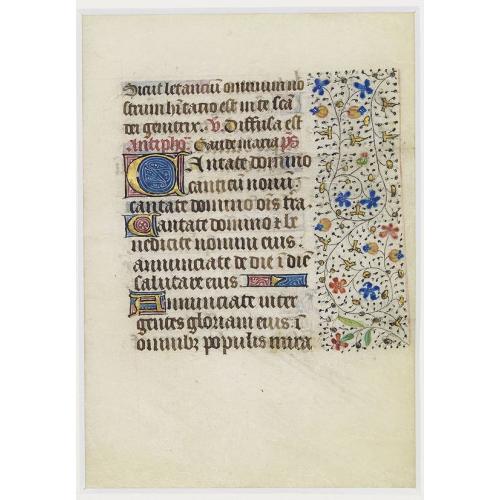 Sicut letanciū omnium no
strum hītatio est in te scā
dei genitrix. V Diffusa est
Antipho Gaude maria ps
Cantate domino
canticū nouū.
cantate domino oīs tra
Cantate domino & be
nedicite nomini eius.
annunciate de die ī die
salutare eius
Annunciate inter
gentes gloriam eius. ī
omnibz populis mira